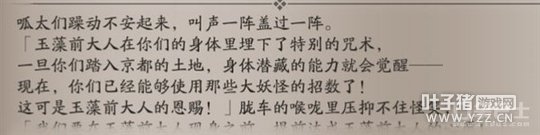 呱太们躁动不安起来，叫声一阵盖过一阵。
「玉藻前大人在你们的身体里埋下了特别的咒术，
一旦你们踏入京都的土地，身体潜藏的能力就会觉醒——
现在，你们已经能够使用那些大妖怪的招数了！
这可是玉藻前大人的恩赐！」胧车的喉咙里压抑不住怪
叶子猪 游戏网
www.YZZ.CN